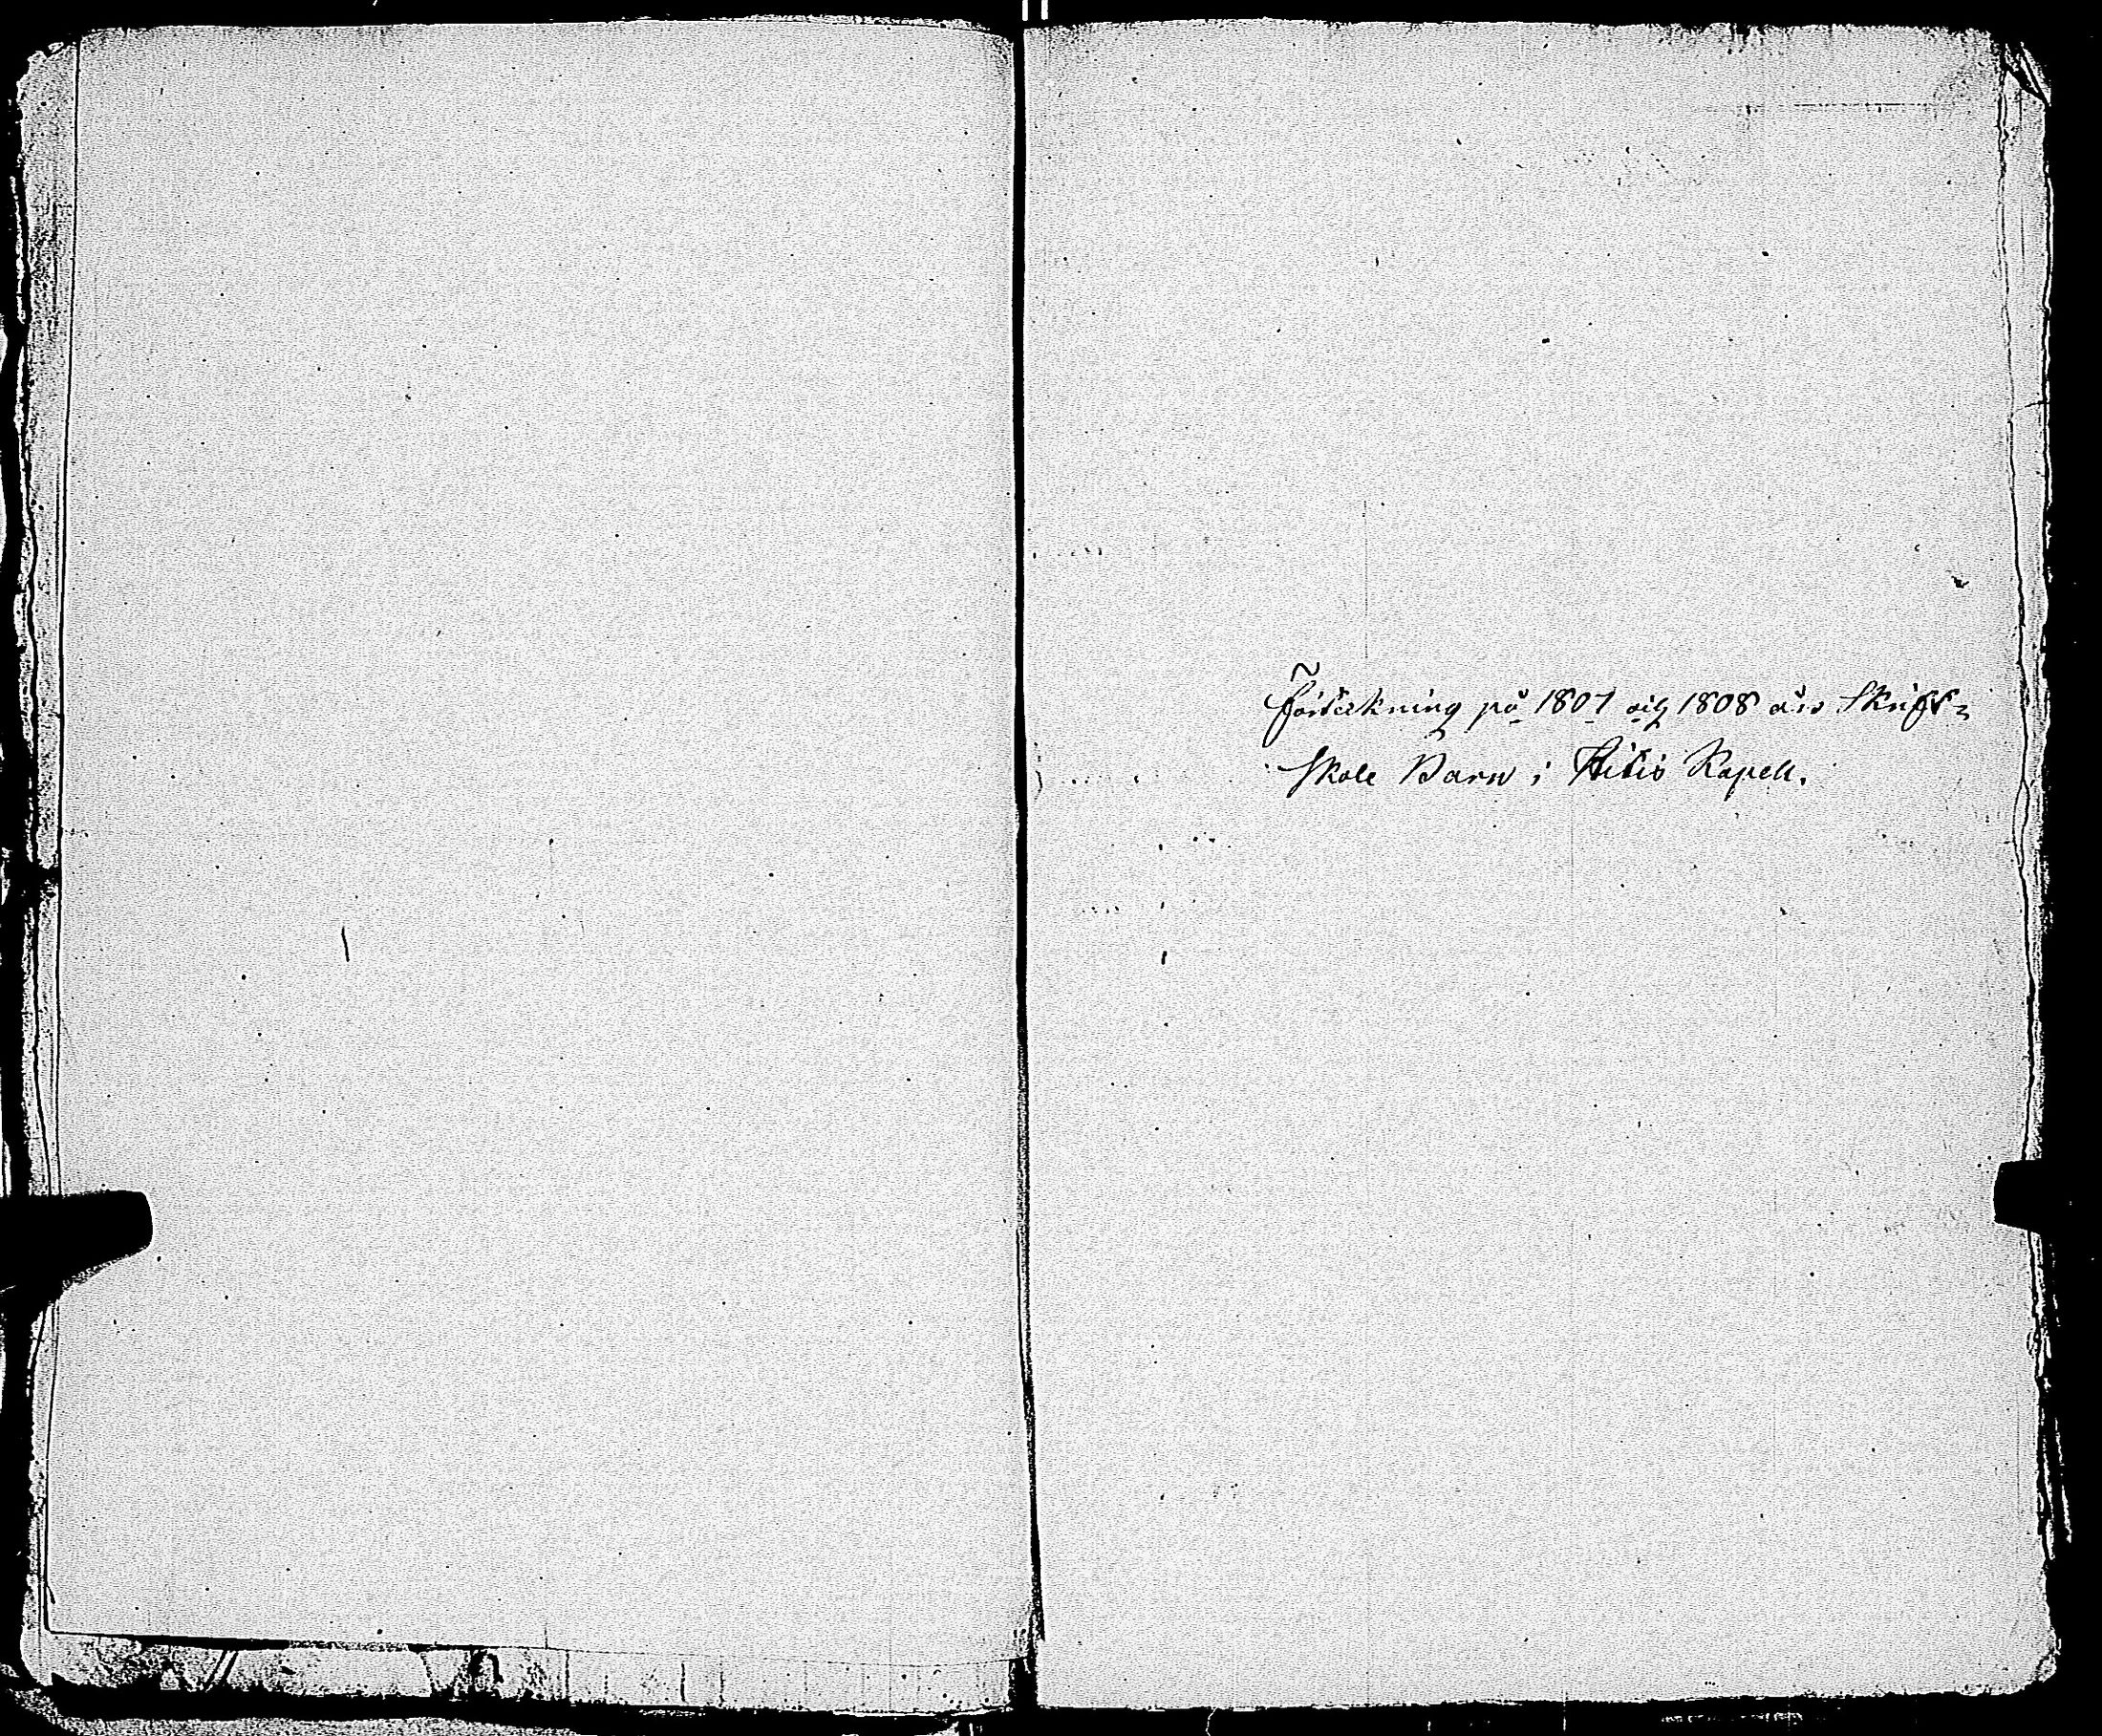 Förtekning på 1807 och 1808 års Skrift=
Skole Barn i Hitis Kapell.